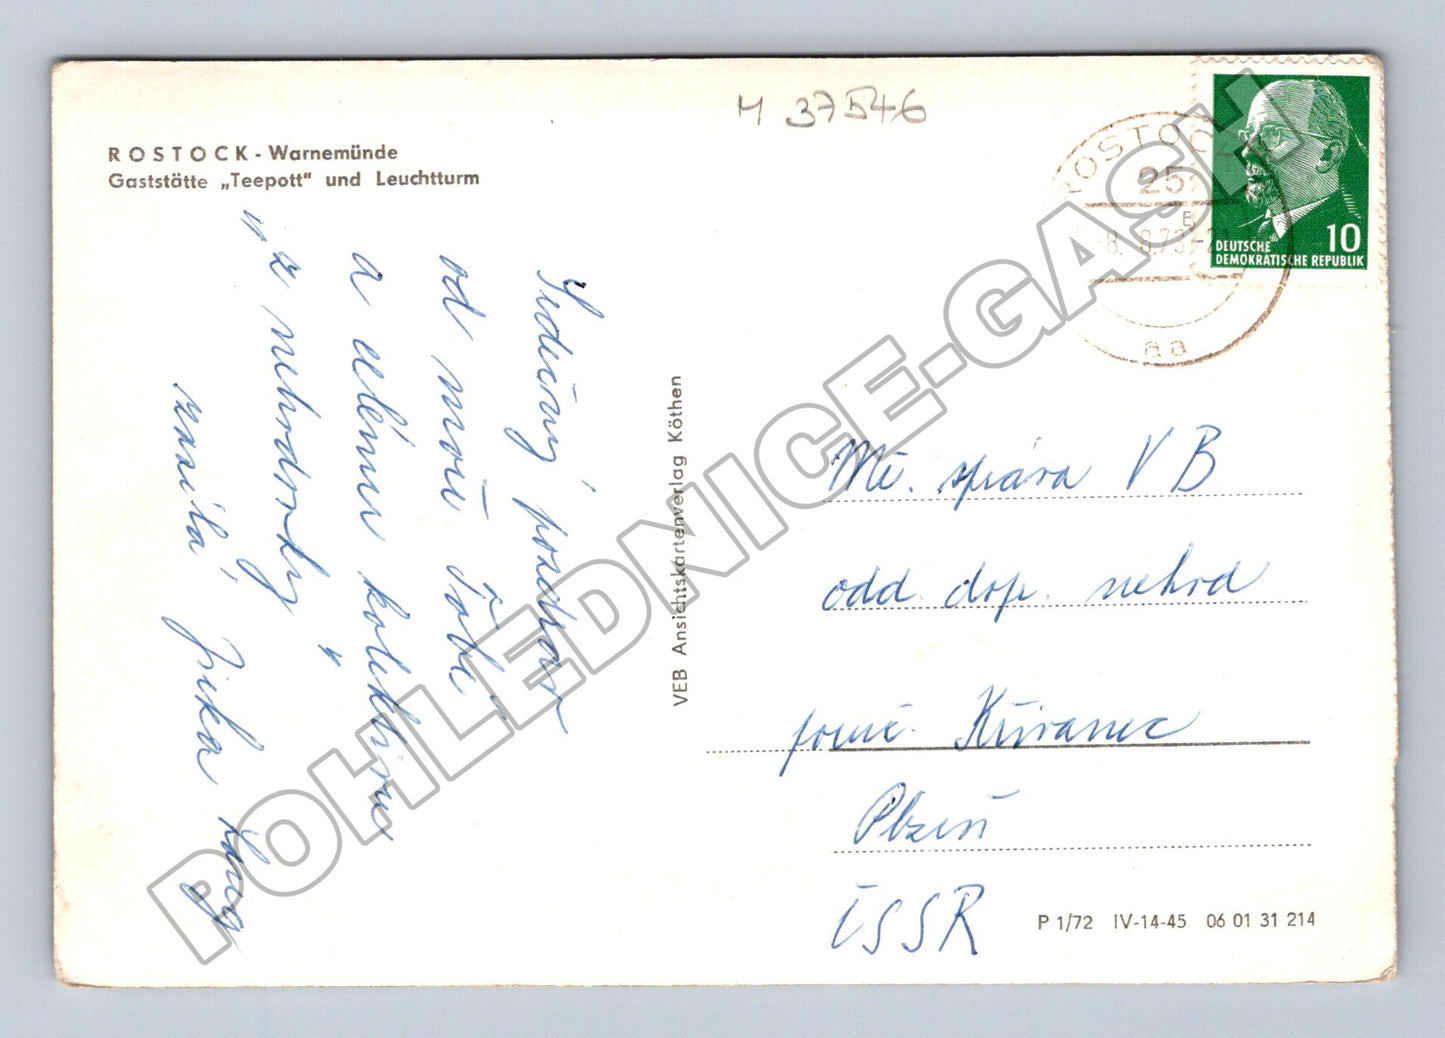 M 37546
ROSTOCK - Warnemünde
Gaststätte „Teepott" und Leuchtturm
Srdečný pozdrav
od moře Tobě
a celému kolektivu
"z nehodovky"
zasílá Jirka
VEB Ansichtskartenverlag Köthen
ROSTOCK
25
8. 8.73-21
aa
10
DEUTSCHE
DEMOKRATISCHE REPUBLIK
Mě. správa VB
odd. dop. nehod
Křivanec
Plzeň
ČSSR
P 1/72 IV-14-45 06 01 31 214
POHLEDNICE-GASH